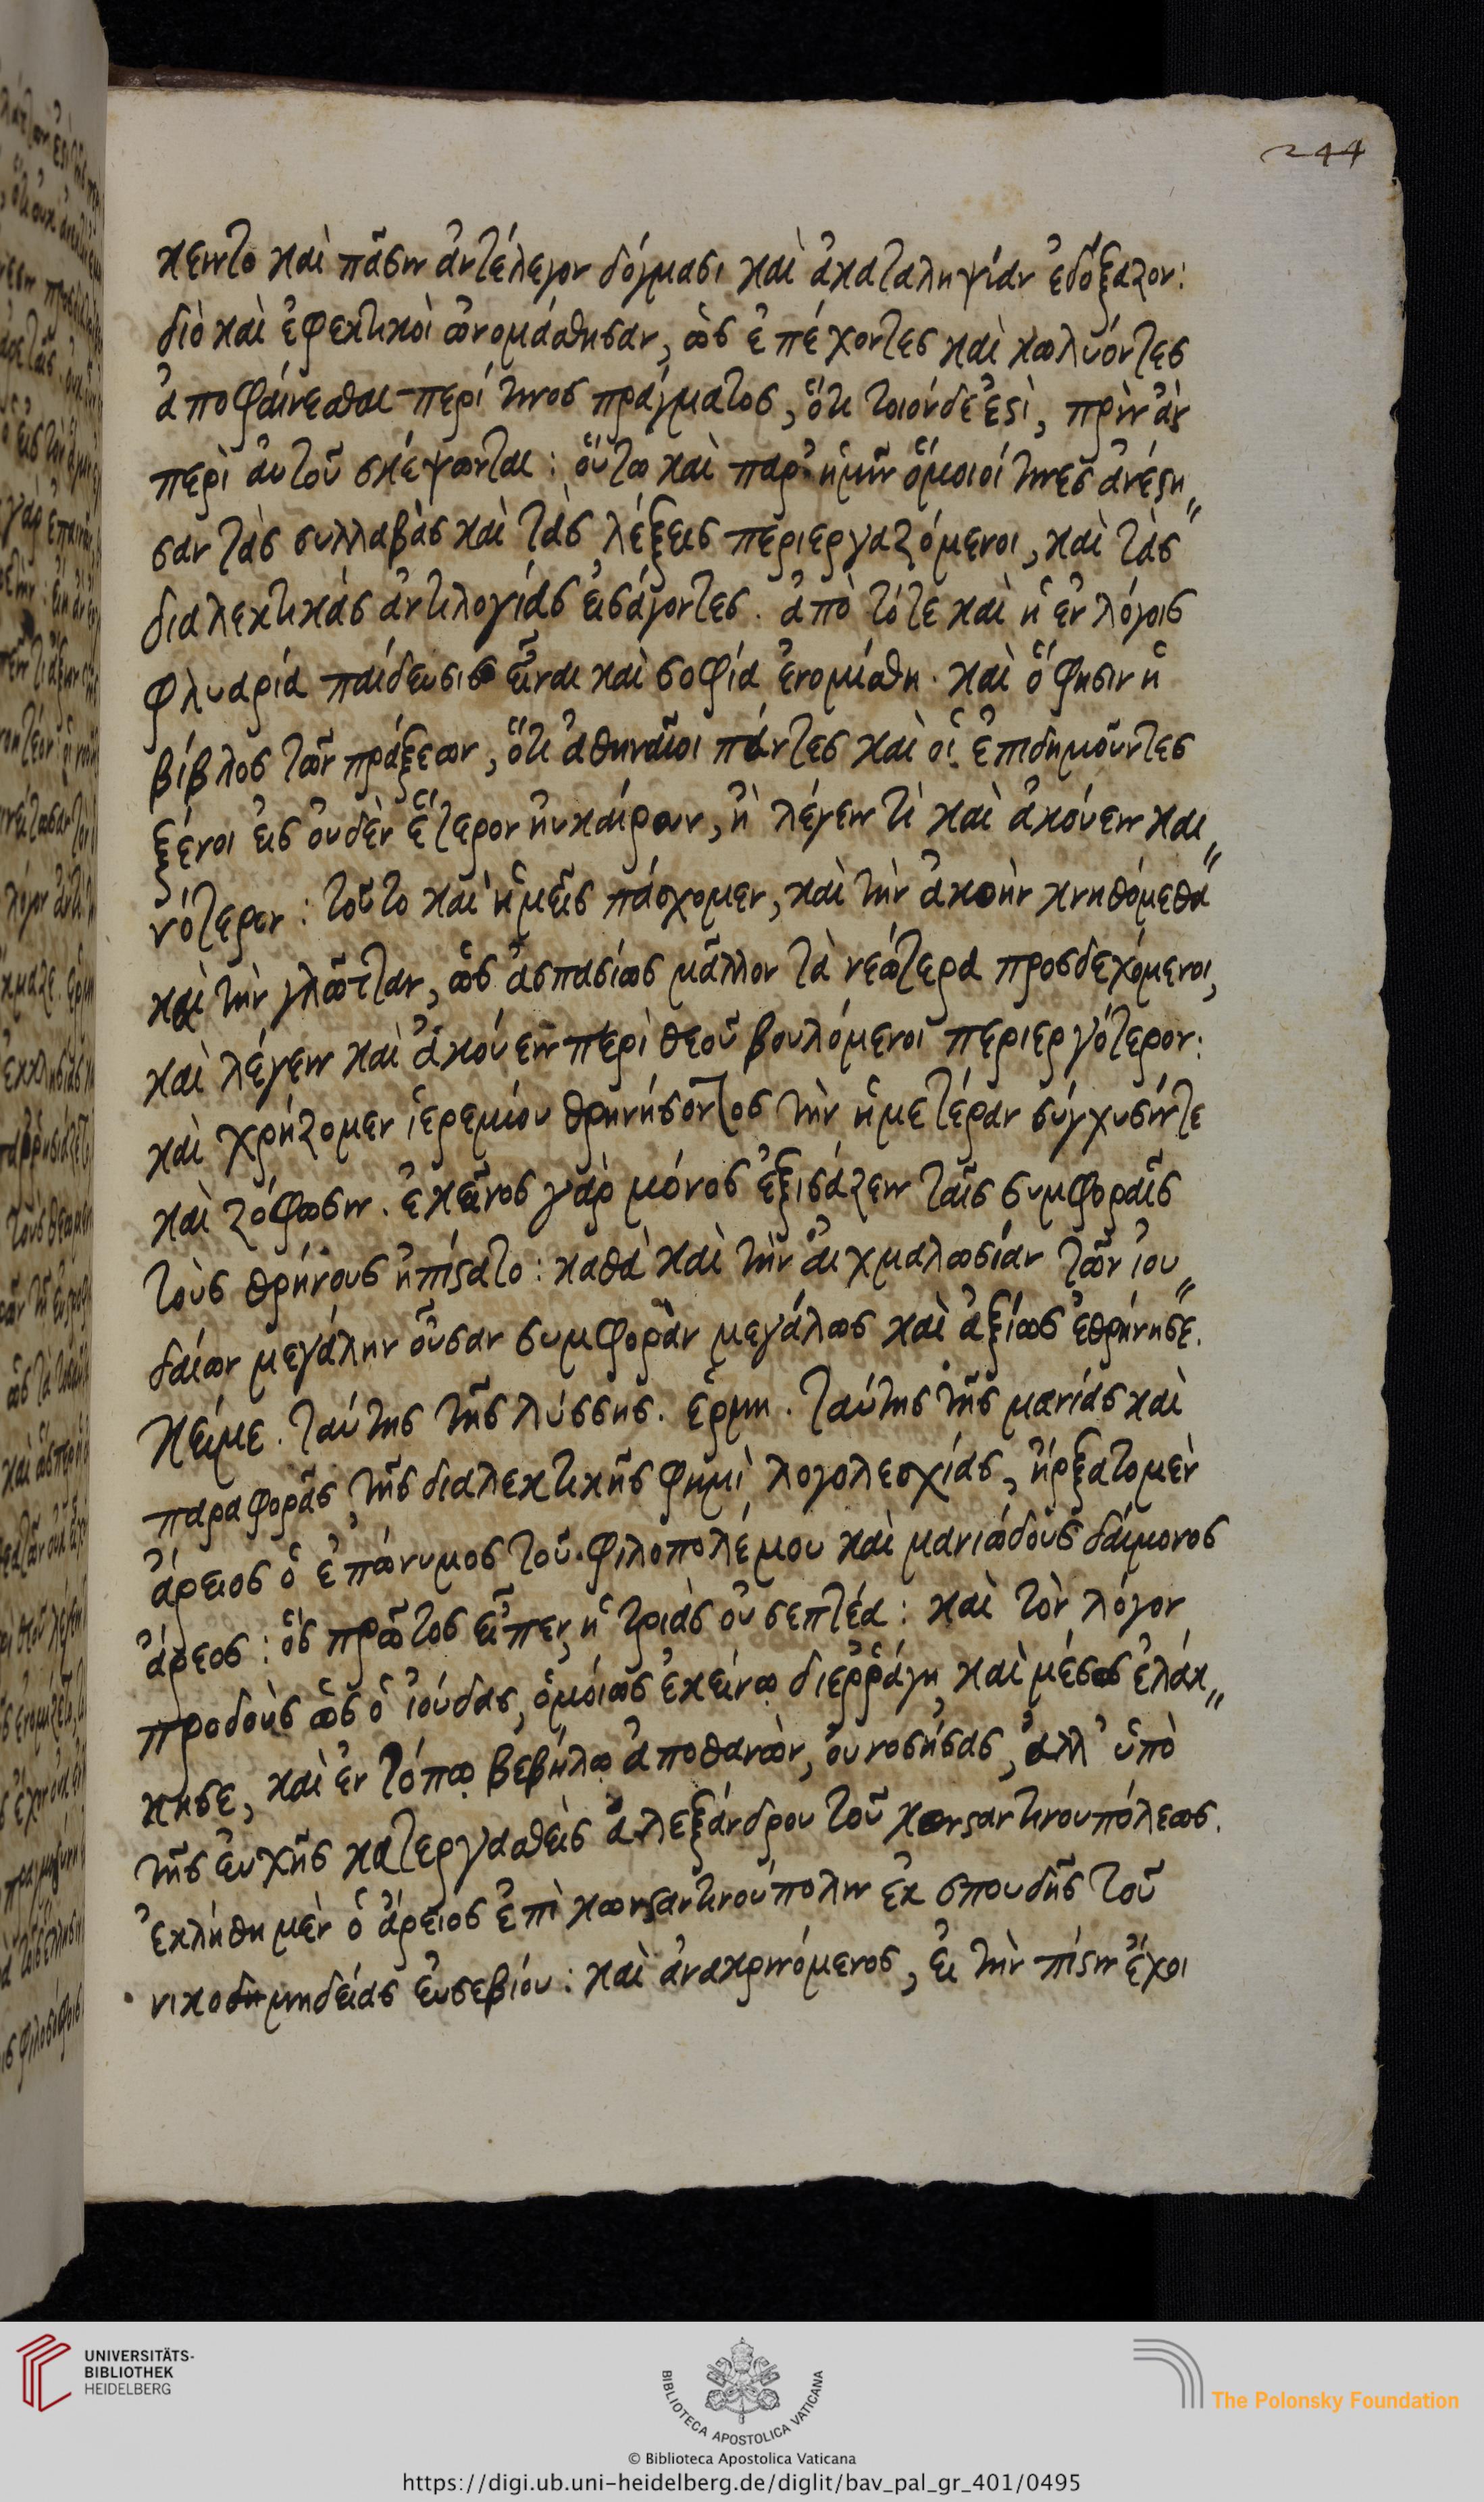 244
κειντο καὶ πᾶσιν ἀντέλεγον δόγμασι καὶ ἀκαταληψίαν ἐδόξαζον:
διὸ καὶ ἐφεκτικοὶ ὠνομάσθησαν, ὡς ἐπέχοντες καὶ κωλυόντες
ἀποφαίνεσθαι περί τινος πράγματος, ὅτι τοιόνδε ἐστὶ, πρὶν ἂν
περὶ αὐτοῦ σκέψωνται: οὕτω καὶ παρ' ἡμῖν ὅμοιοί τινες ἀνέστη〃
σαν τὰς συλλαβὰς καὶ τὰς λέξεις περιεργαζόμενοι, καὶ τὰς
διαλεκτικὰς ἀντιλογίας εἰσάγοντες. ἀπὸ τότε καὶ ἡ ἐν λόγοις
φλυαρία παίδευσις εἶναι καὶ σοφία ἐνομίσθη. καὶ ὅ φησιν ἡ
βίβλος τῶν πράξεων, ὅτι ἀθηναῖοι πάντες καὶ οἱ ἐπιδημοῦντες
ξένοι εἰς οὐδὲν ἕτερον ηὐκαίρουν, ἢ λέγειν τὶ καὶ ἀκούειν και〃
νότερον: τοῦτο καὶ ἡμεῖς πάσχομεν, καὶ τὴν ἀκοὴν κνηθόμεθα
καὶ τὴν γλῶτταν, ὡς ἀσπασίως μᾶλλον τὰ νεώτερα προσδεχόμενοι,
καὶ λέγειν καὶ ἀκούειν περὶ θεοῦ βουλόμενοι περιεργότερον:
καὶ χρήζομεν ἱερεμίου θρηνήσοντος τὴν ἡμετέραν σύγχυσίν τε
καὶ ζόφωσιν. ἐκεῖνος γὰρ μόνος ἐξισάζειν ταῖς συμφοραῖς
τοὺς θρήνους ἠπίστατο: καθὰ καὶ τὴν αἰχμαλωσίαν τῶν ἰου〃
δαίων μεγάλην οὖσαν συμφορὰν μεγάλως καὶ ἀξίως ἐθρήνησε.
Κείμε. ταύτης τῆς λύσσης. ἑρμη. ταύτης τῆς μανίας καὶ
παραφορᾶς τῆς διαλεκτικῆς φημὶ λογολεσχίας, ἤρξατο μὲν
ἄρειος ὁ ἐπώνυμος τοῦ φιλοπολέμου καὶ μανιώδους δαίμονος
ἄρεος: ὃς πρῶτος εἶπεν, ἡ τριὰς οὐ σεπτέα: καὶ τὸν λόγον
προδοὺς ὡς ὁ ἰούδας, ὁμοίως ἐκείνῳ διεῤῥάγη καὶ μέσος ἐλάκ〃
κησε, καὶ ἐν τόπῳ βεβήλῳ ἀποθανὼν, οὐ νοσήσας, ἀλλ' ὑπὸ
τῆς εὐχῆς κατεργασθεὶς ἀλεξάνδρου τοῦ κωνσταντινουπόλεως.
ἐκλήθη μὲν ὁ ἄρειος ἐπὶ κωνσταντινούπολιν ἐκ σπουδῆς τοῦ
νικοδημηδείας εὐσεβίου: καὶ ἀνακρινόμενος, εἰ τὴν πίστιν ἔχοι
UNIVERSITÄTS-
BIBLIOTHEK
HEIDELBERG
BIBLIOTECA APOSTOLICA VATICANA
The Polonsky Foundation
© Biblioteca Apostolica Vaticana
https://digi.ub.uni-heidelberg.de/diglit/bav_pal_gr_401/0495